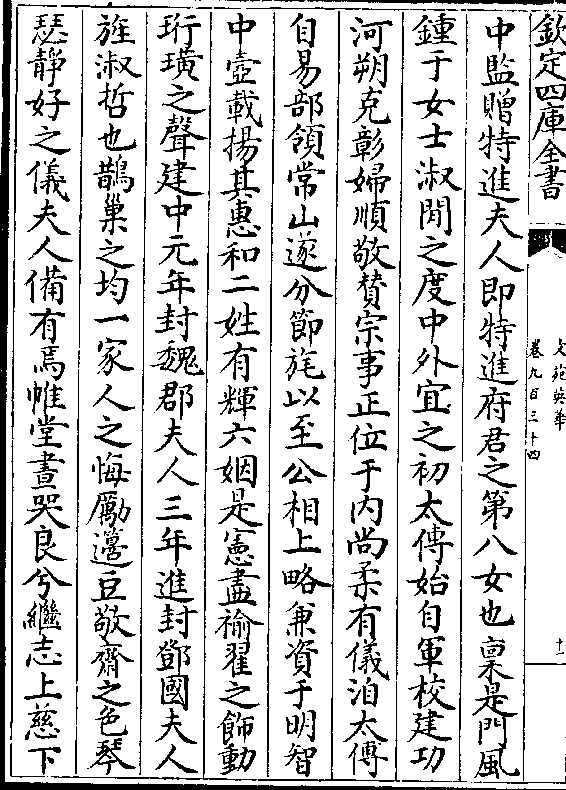 欽定四庫全書
文苑英華
卷九百三十四
十一
中監贈特進夫人即特進府君之第八女也稟是門風
鍾于女士淑閒之度中外宜之初太傅始自軍校建功
河朔克彰婦順敬贊宗事正位于内尚柔有儀洎太傅
自易部領常山遂分節旄以至公相上略兼資于明智
中壼載揚其惠和二姓有輝六姻是憲盡褕翟之飾動
珩璜之聲建中元年封魏郡夫人三年進封鄧國夫人
旌淑哲也鵲巢之均一家人之悔厲籩豆敬齋之色琴
瑟靜好之儀夫人備有焉帷堂晝哭良兮繼志上慈下